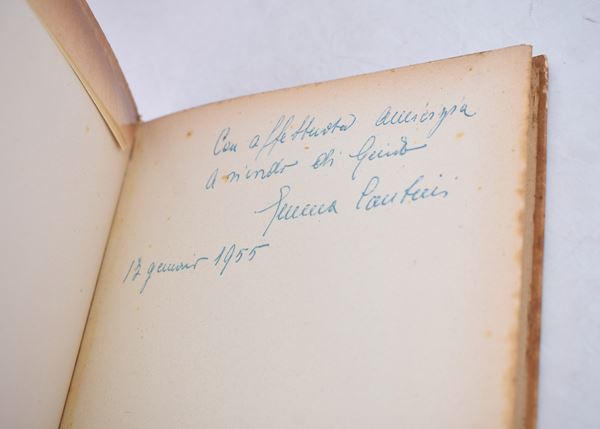 Con affettuosa amicizia
A ricordo di Guido
Emma Cantini
17 gennaio 1955